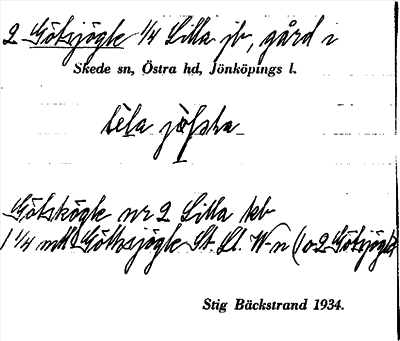 2 Götsjögle 1/4 Lilla jb, gård i
Skede sn, Östra hd, Jönköpings l.
Götskögle nr 2 Lilla kb
1 1/4 mtl Göthsjögle St. Ll. W-n (o 2 Götsjögle)
Stig Bäckstrand 1934.